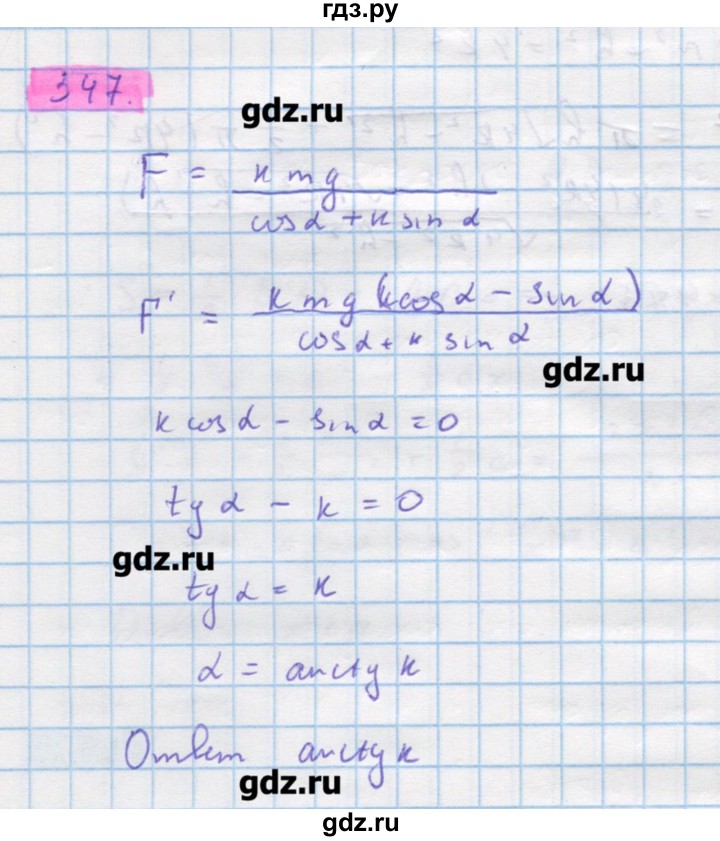 гдз.ру
347.
gdz.ru
F = kmg / (cosα + k sin α)
F' = kmg(k cos α - sin α) / (cosα + k sin α)
gdz.ru
k cosα - sin α = 0
tg α - k = 0
gdz.ru
tg α = k
α = arctg k
Ответ arctg k
gdz.ru
gdz.ru